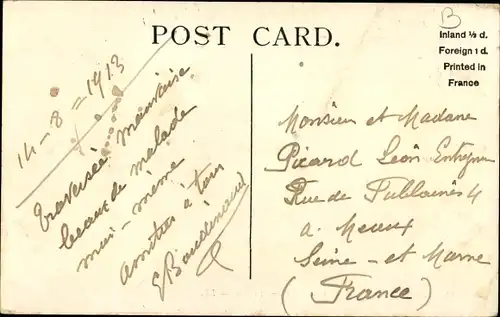 POST CARD.
B
Inland ½ d.
Foreign 1 d.
Printed in
France
14-8=1913
Traversée mauvaise
beaucoup malade
moi-même
Amitiés à tous
Monsieur et Madame
Picard Léon
Rue de 4
a Meaux
Seine-et Marne
(France)